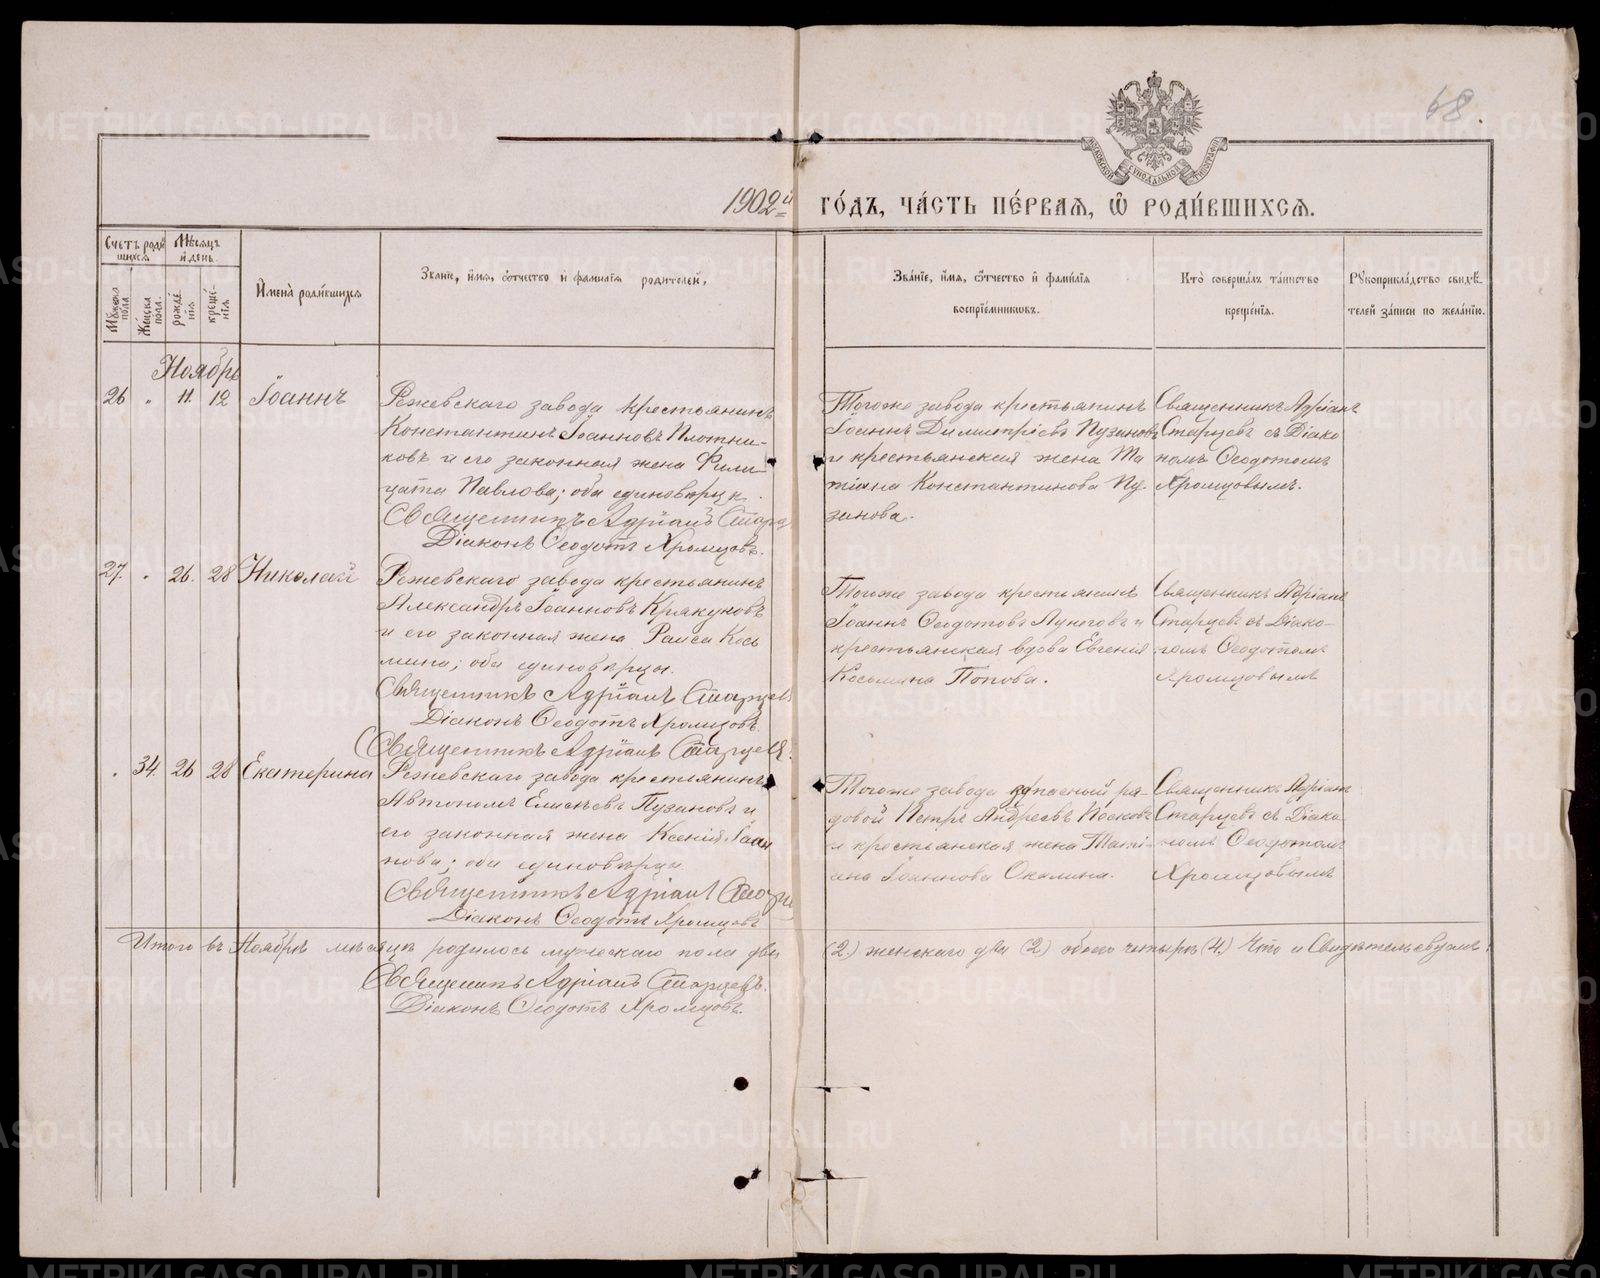 68.
МОСКОВСКОЙ СѴНОДАЛЬНОЙ ТИПОГРАФІИ
1902й го́дъ, ча́сть пе́рваѧ, ѡ҆ роди́вшихсѧ.
Счетъ роди́вшихсѧ
Мѣ́сѧцъ и҆ де́нь.
И҆мена̀ роди́вшихсѧ
Зва́нїе, и҆́мѧ, ѻ҆́тчество и҆ фами́лїѧ родителей,
Зва́нїе, и҆́мѧ, ѻ҆́тчество и҆ фами́лїѧ воспрїе́мникѡвъ.
Кто̀ соверша́лъ та́инство креще́нїѧ.
Рꙋкоприкла́дство свидѣ́телей за́писи по жела́нїю.
Мꙋжска пола.
Же́нска по́ла.
рожде́нїѧ
креще́нїѧ
Ноябрь
26 „ 11. 12 Іоаннъ
Режевскаго завода крестьянинъ
Константинъ Іоанновъ Плотни-
ковъ и его законная жена Фили-
цата Павлова; оба единовѣрцы.
Священникъ Адріанъ Старц
Діаконъ Ѳеодотъ Хромцовъ.
Тогоже завода крестьянинъ
Іоаннъ Димитріевъ Пузановъ
и крестьянская жена Та
тіана Константинова Пу-
занова.
Священникъ Адріанъ
Старцевъ съ Діако
номъ Ѳеодотомъ
Хромцовымъ.
27. „ 26. 28 Николай
Режевскаго завода крестьянинъ
Александръ Іоанновъ Крякуновъ
и его законная жена Раиса Кось
мина; оба единовѣрцы.
Священникъ Адріанъ Старцевъ
Діаконъ Ѳеодотъ Хромцовъ.
Тогоже завода крестьянинъ
Іоаннъ Ѳеодотовъ и
крестьянская вдова Евгенія
Косьмина Попова.
Священникъ Адріанъ
Старцевъ съ Діако-
номъ Ѳеодотомъ
Хромцовымъ
Священникъ Адріанъ Старцевъ.
„ 34. 26 28 Екатерина
Режевскаго завода крестьянинъ
Автономъ Елисѣевъ Пузановъ и
его законная жена Ксенія Іоан
нова; оба единовѣрцы.
Священникъ Адріанъ Старце
Діаконъ Ѳеодотъ Хромцовъ
Тогоже завода запасный ря-
довой Петръ Андреевъ
и крестьянская жена Таті-
ана Іоаннова Окалина.
Священникъ Адріанъ
Старцевъ съ Діако
номъ Ѳеодотомъ
Хромцовымъ
Итого въ Ноябрѣ мѣсяцѣ родилось мужескаго пола два (2) женскаго два (2) обоего четыре (4.) Что и Свидѣтельсвуемъ:
Священникъ Адріанъ Старцевъ.
Діаконъ Ѳеодотъ Хромцовъ.
METRIKI.GASO-URAL.RU